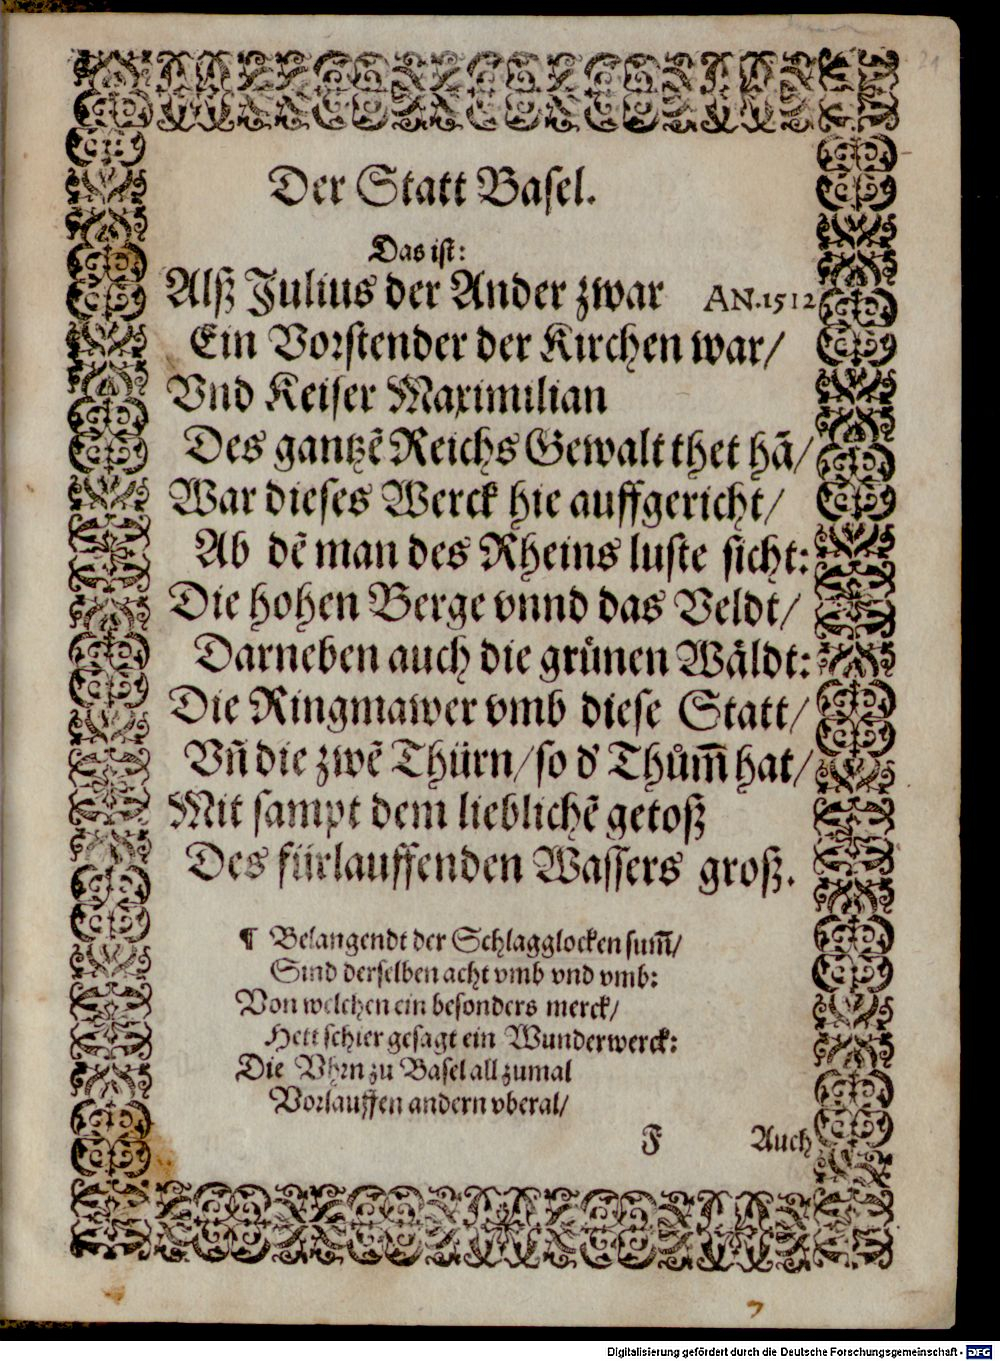 21
Der Statt Basel.
Das ist:
Alß Julius der Ander zwar AN. 1512
Ein Vorstender der Kirchen war/
Vnd Keiser Maximilian
Des gantzē Reichs Gewalt thet hā/
War dieses Werck hie auffgericht/
Ab dē man des Rheins luste sicht:
Die hohen Berge vnnd das Veldt/
Darneben auch die grünen Wäldt:
Die Ringmawer vmb diese Statt/
Vñ die zwē Thürn/so d' Thům̃ hat/
Mit sampt dem lieblichē getoß
Des fürlauffenden Wassers groß.
¶ Belangendt der Schlagglocken sum̃/
Sind derselben acht vmb vnd vmb:
Von welchen ein besonders merck/
Hett schier gesagt ein Wunderwerck:
Die Vhrn zu Basel all zumal
Vorlauffen andern vberal/
F Auch
Digitalisierung gefördert durch die Deutsche Forschungsgemeinschaft - DFG